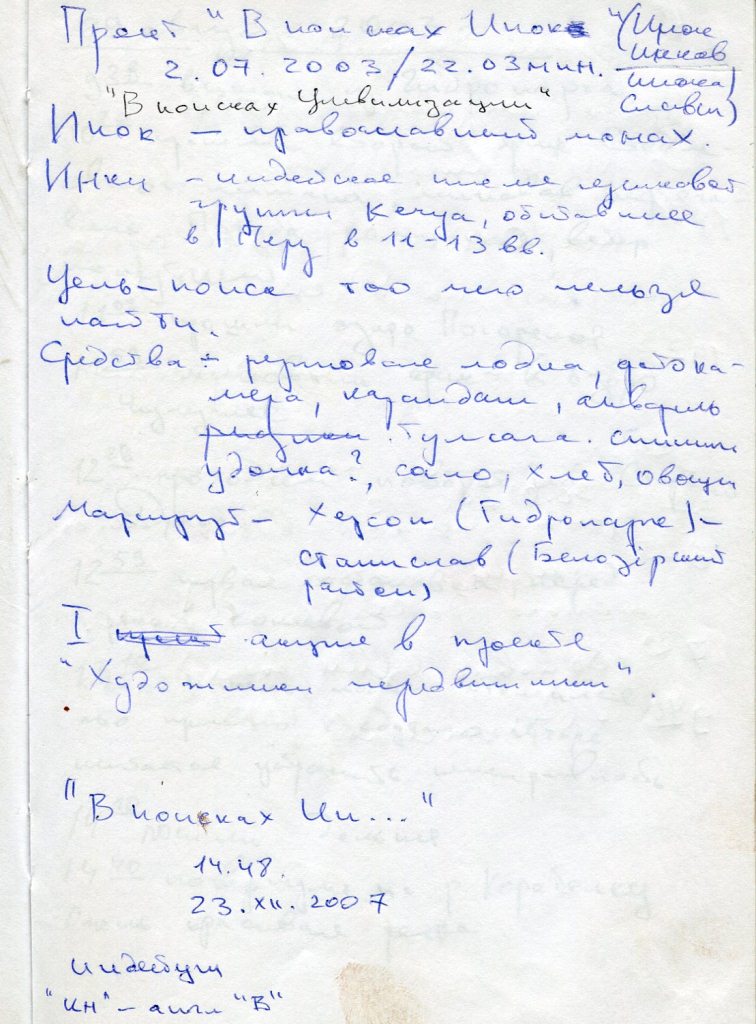 Проект "В поисках Инок" (Инок
Инков
инока)
2.07.2003/22.03 мин.
"В поисках Цивилизации"
Инок – православный монах.
Инки – индейское племя языковой
группы Кечуа, обитавшее
в Перу в 11-13 вв.
Цель – поиск того чего нельзя
найти.
Средства – резиновая лодка, фотока-
мера, карандаш, акварель
удочка?, сало, хлеб, овощи
Маршрут – Херсон (Гидропарк) –
Станислав (Белозірский
район)
I акция в проекте
"Художники передвижники".
"В поисках Ин..."
14.48.
23.XII.2007
"ин" – англ "В"